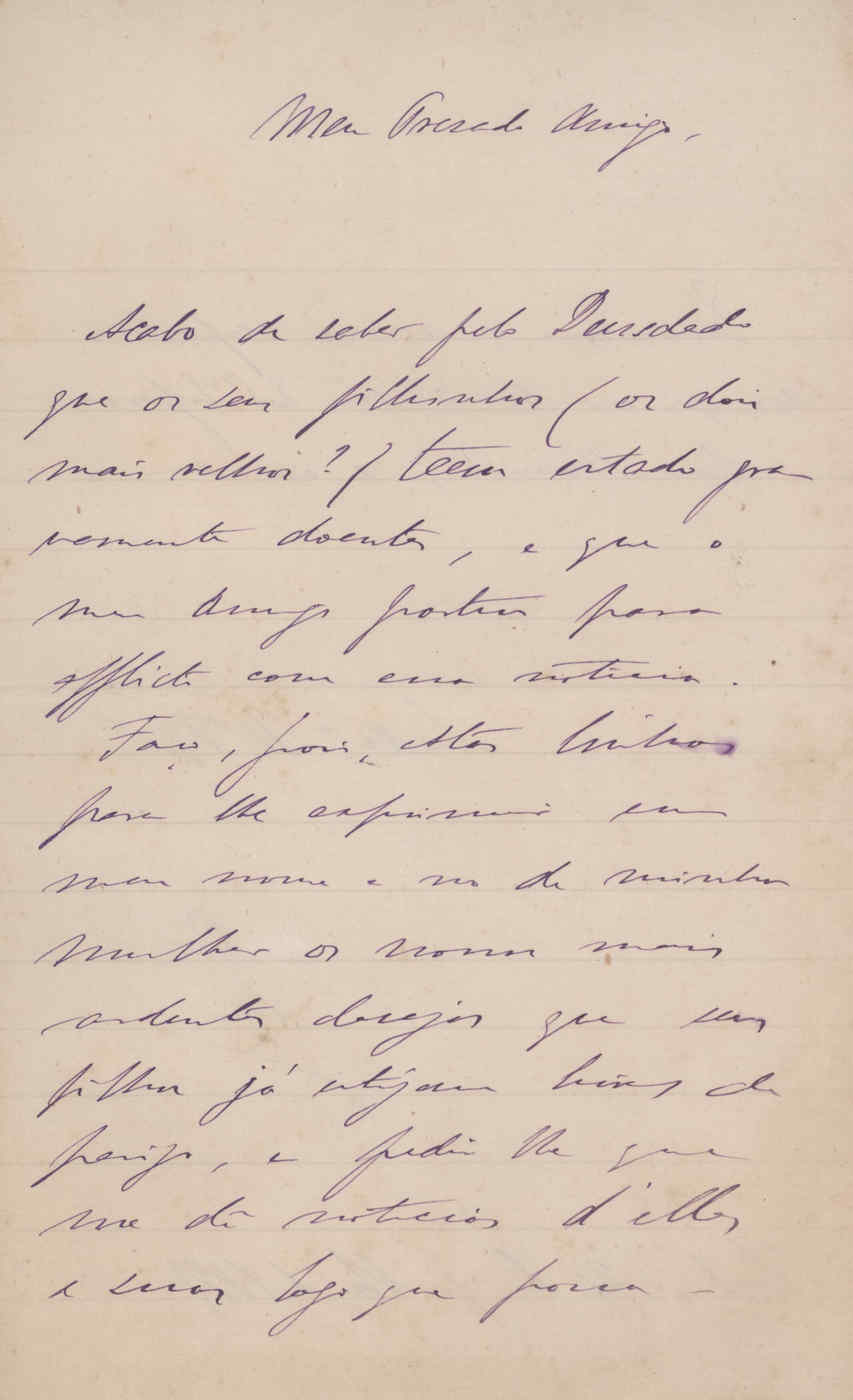 Meu Presado Amigo,
Acabo de saber pelo Deusdado
que os seus filhinhos (os dois
mais velhos?) teem estado gra
vemente doentes, e que o
meu Amigo partiu para
afflicto com essa noticia.
Faço, pois, estas linhas
para lhe exprimir em
meu nome e no de minha
mulher os nossos mais
ardentes desejos que seus
filhos já estejam livres de
perigo, e pedir lhe que
me dê noticias d'elles
e suas logo que possa –